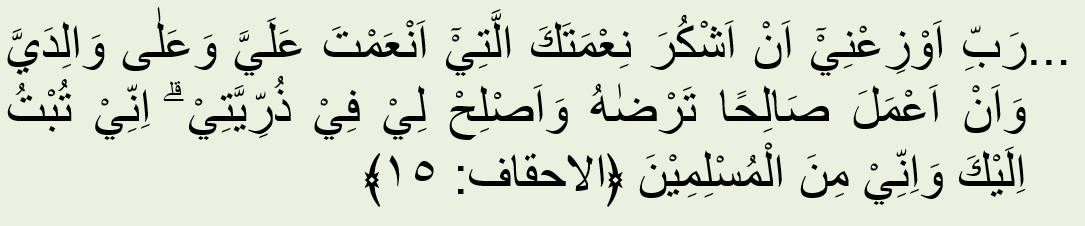 ...رَبِّ اَوْزِعْنِيْٓ اَنْ اَشْكُرَ نِعْمَتَكَ الَّتِيْٓ اَنْعَمْتَ عَلَيَّ وَعَلٰى وَالِدَيَّ
وَاَنْ اَعْمَلَ صَالِحًا تَرْضٰىهُ وَاَصْلِحْ لِيْ فِيْ ذُرِّيَّتِيْ ۗ اِنِّيْ تُبْتُ
اِلَيْكَ وَاِنِّيْ مِنَ الْمُسْلِمِيْنَ ﴿الاحقاف: ١٥﴾